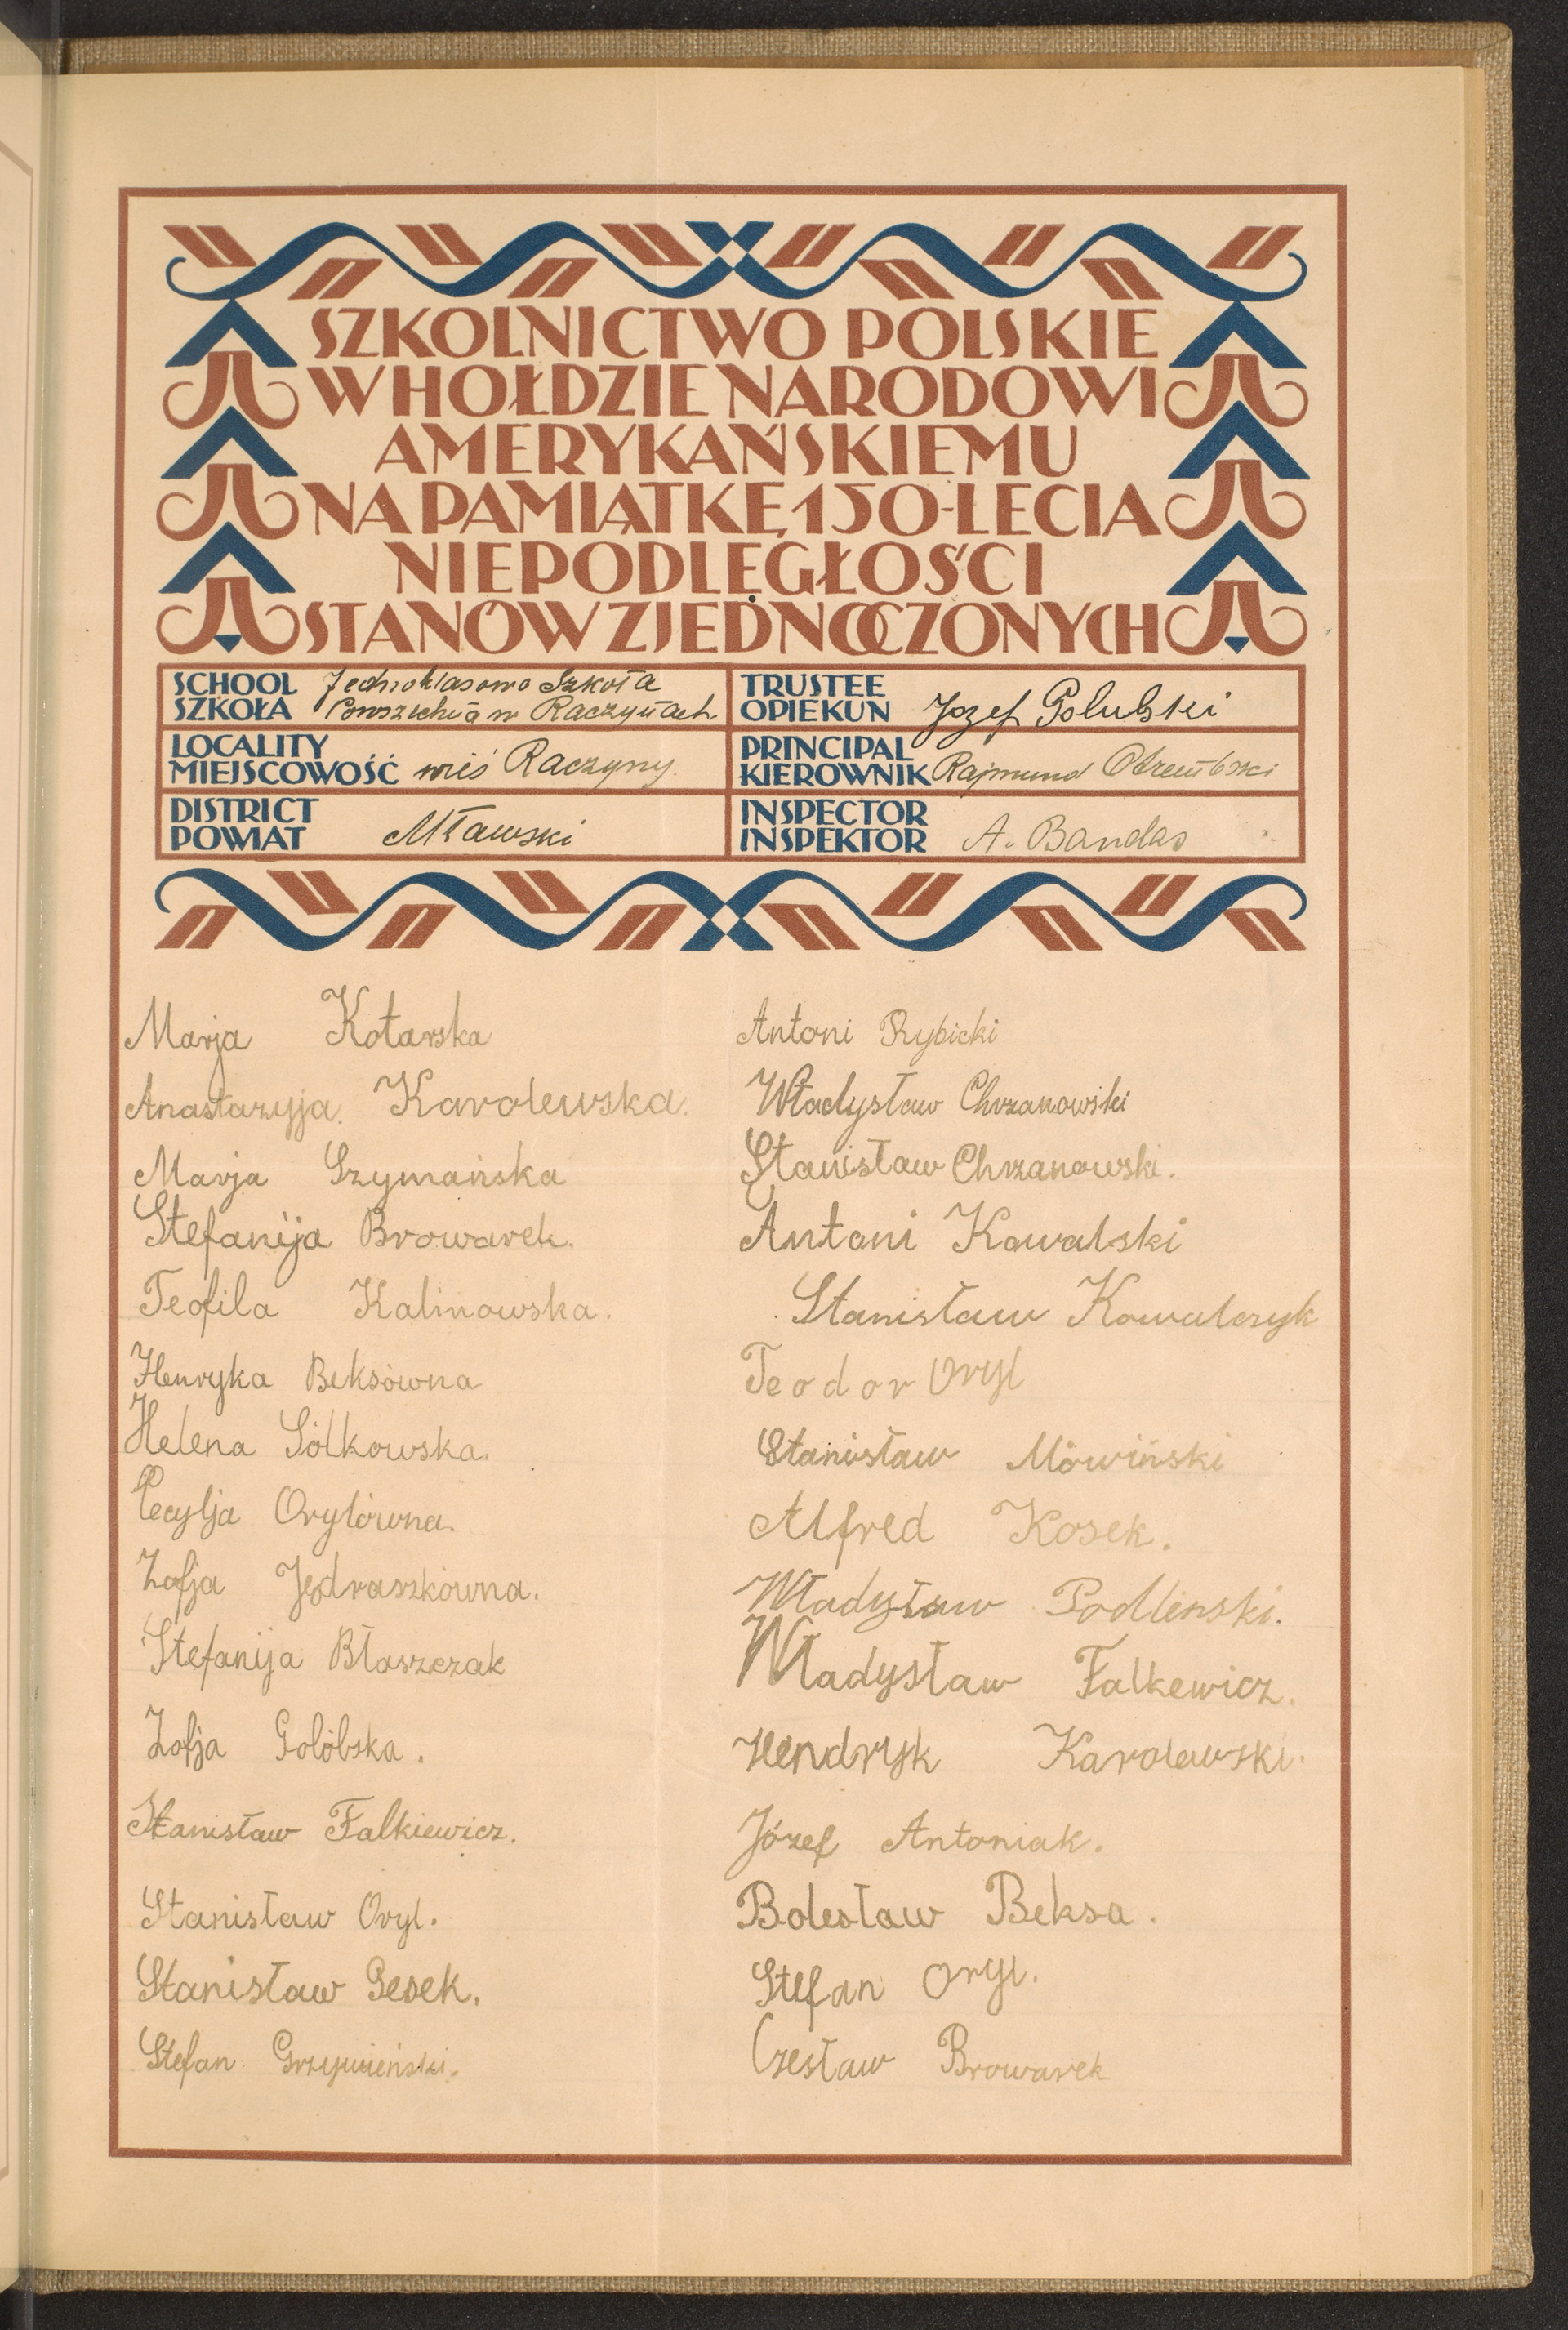 SZKOLNICTWO POLSKIE
W HOŁDZIE NARODOWI
AMERYKAŃSKIEMU
NA PAMIĄTKĘ 150-LECIA
NIEPODLEGŁOŚCI
STANÓW ZJEDNOCZONYCH
SCHOOL
SZKOŁA
Jednoklasowa Szkoła
Powszechna w Raczynach
TRUSTEE
OPIEKUN
Józef Golubski
LOCALITY
MIEJSCOWOŚĆ
wieś Raczyny.
PRINCIPAL
KIEROWNIK
Rajmund Otrembski
DISTRICT
POWIAT
Mławski
INSPECTOR
INSPEKTOR
A. Bandas
Marja Kotarska
Anastazyja Karolewska.
Marja Szymańska
Stefanija Browarek.
Teofila Kalinowska.
Henryka Beksówna
Helena Sólkowska.
Cecylja Orylówna.
Zofja Jędraszkówna.
Stefanija Błaszczak
Zofja Golóbska.
Stanisław Falkiewicz.
Stanisław Oryl.
Stanisław Pesek.
Stefan Grzywieński.
Antoni Rybicki
Władysław Chrzanowski
Stanisław Chrzanowski.
Antoni Kowalski
Stanisław Kowalczyk
Teodor Oryl
Stanisław Mówiński
Alfred Kosek.
Władysław Podlenski.
Władysław Falkewicz.
Hendryk Karolewski.
Józef Antoniak.
Bolesław Beksa.
Stefan Oryl.
Czesław Browarek